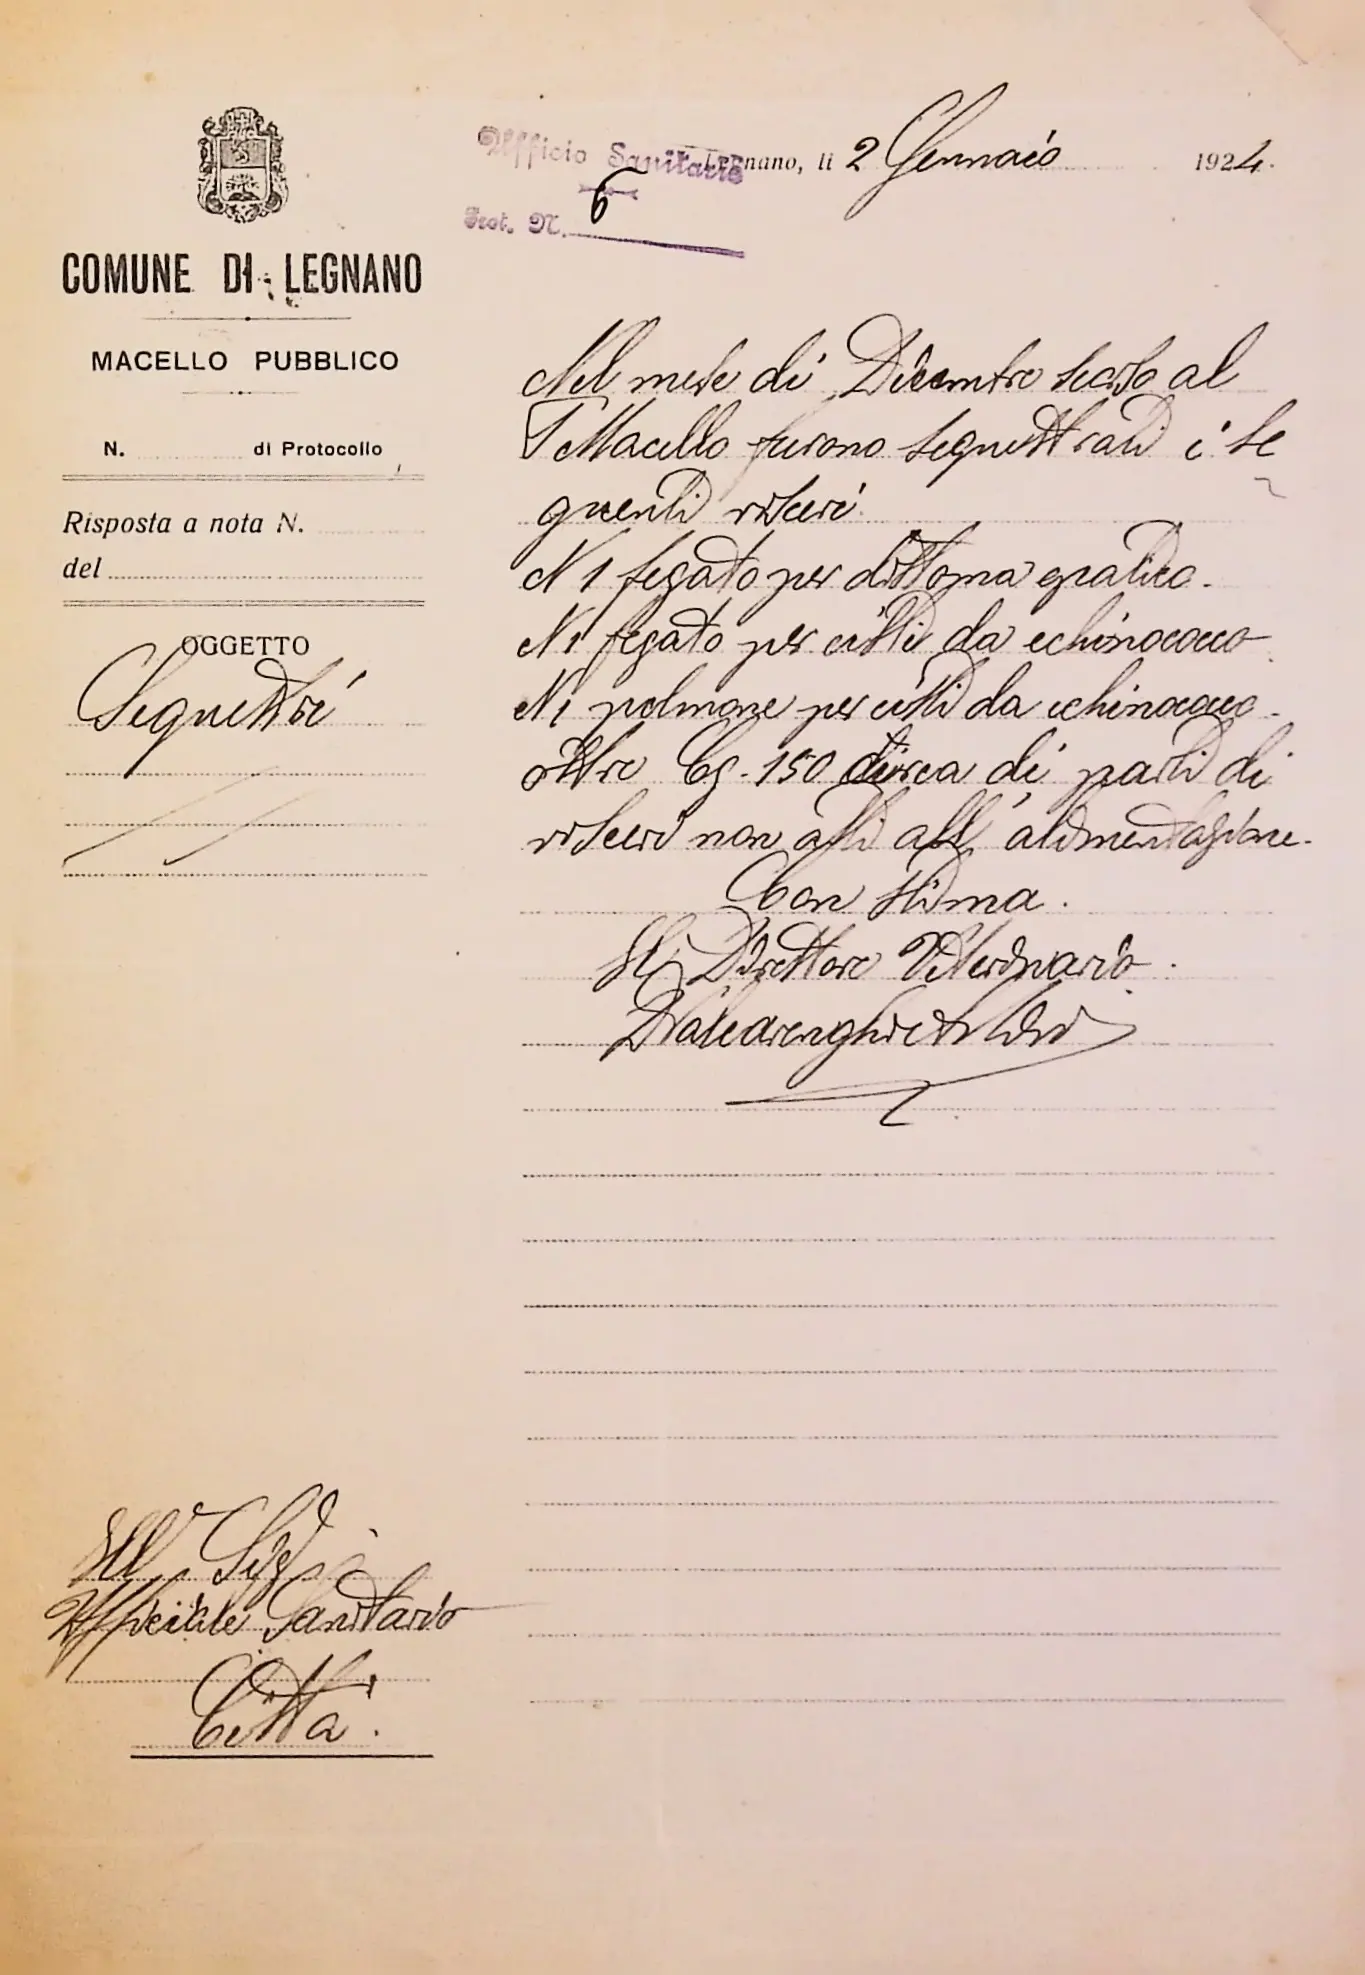 COMUNE DI LEGNANO
MACELLO PUBBLICO
N. di Protocollo
Risposta a nota N.
del
OGGETTO
Sequestri
Ufficio Sanitario
Prot. N. 6
Legnano, li 2 Gennaio 1924.
Nel mese di Dicembre scorso al
Macello furono sequestrati i se
guenti visceri
N 1 fegato per distoma epatico.
N 1 fegato per cisti da echinococco
N 1 polmone per cisti da echinococco.
oltre Cg. 150 circa di parti di
visceri non atti all'alimentazione.
Con stima.
Il Direttore Veterinario.
Ill. Sig.
Ufficiale Sanitario
Città.